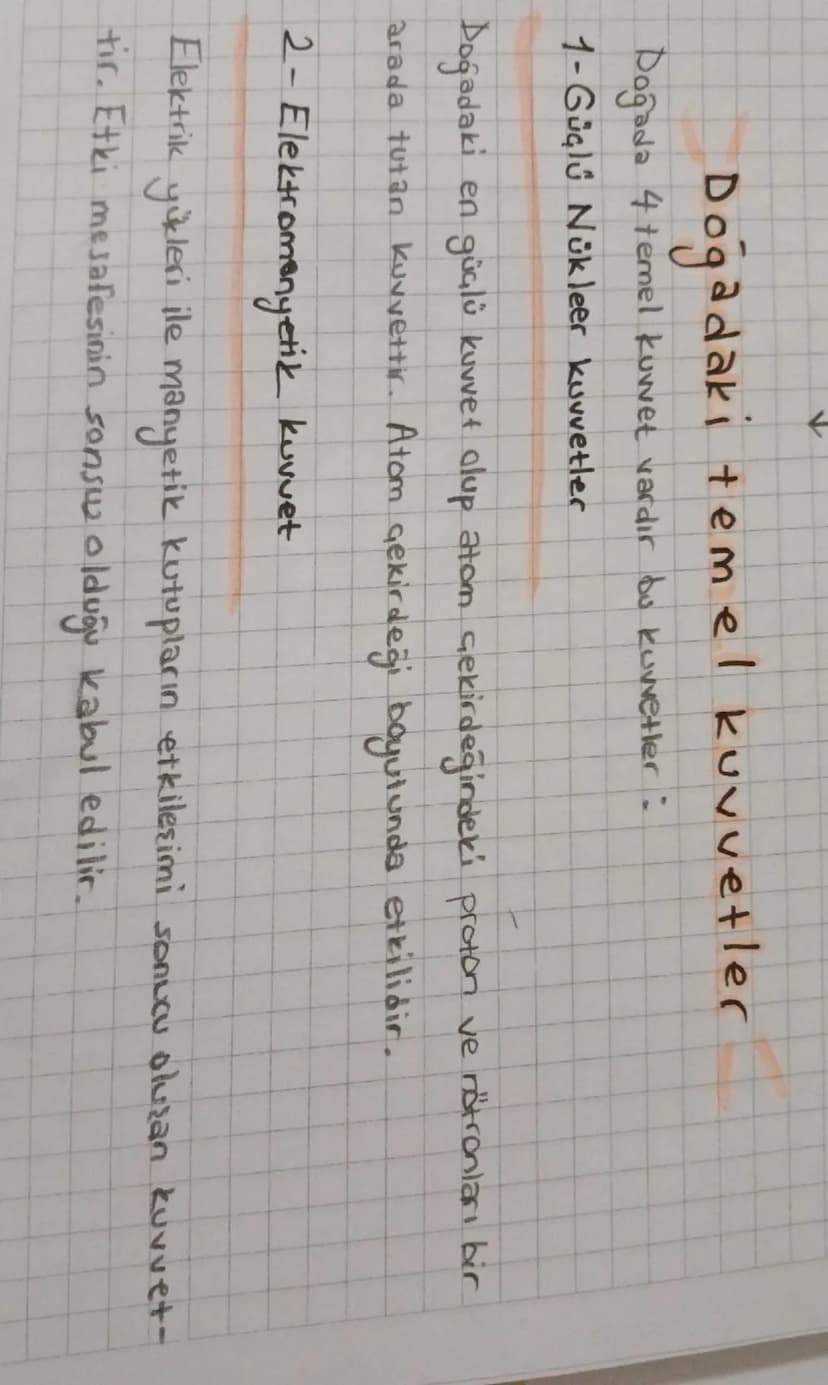 Doğadaki temel kuvvetler
Doğada 4 temel kuvvet vardır bu kuvvetler:
1-Güçlü Nükleer kuvvetler
Doğadaki en güçlü kuvvet olup atom çekirdeğindeki proton ve nötronları bir
arada tutan kuvvettir. Atom çekirdeği boyutunda etkilidir.
2-Elektromanyetik kuvvet
Elektrik yükleri ile manyetik kutupların etkileşimi sonucu oluşan kuvvet-
tir. Etki mesafesinin sonsuz olduğu kabul edilir.